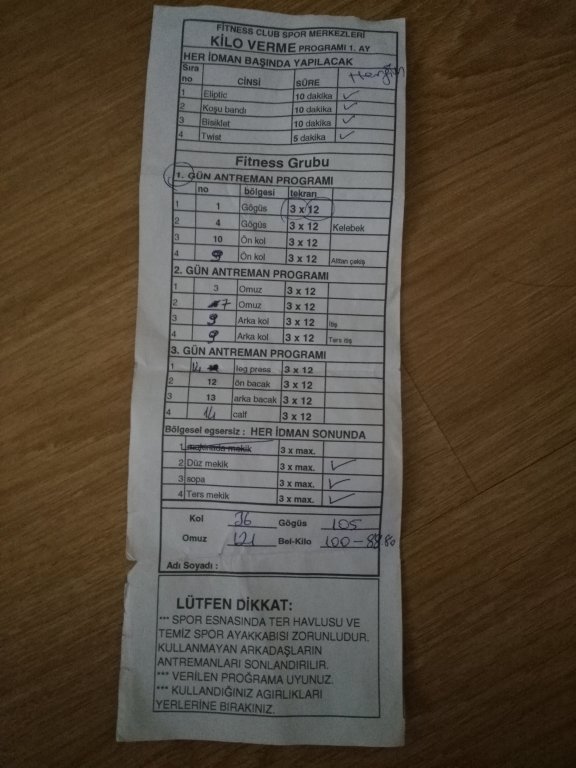 FİTNESS CLUB SPOR MERKEZLERİ
KİLO VERME PROGRAMI 1. AY
HER İDMAN BAŞINDA YAPILACAK
Sıra no CİNSİ SÜRE Hergün
1 Eliptic 10 dakika ✓
2 Koşu bandı 10 dakika ✓
3 Bisiklet 10 dakika ✓
4 Twist 5 dakika ✓
Fitness Grubu
1. GÜN ANTREMAN PROGRAMI
no bölgesi tekrarı
1 1 Gögüs 3 x 12
2 4 Gögüs 3 x 12 Kelebek
3 10 Ön kol 3 x 12
4 9 Ön kol 3 x 12 Alttan çekiş
2. GÜN ANTREMAN PROGRAMI
1 3 Omuz 3 x 12
2 7 Omuz 3 x 12
3 9 Arka kol 3 x 12 itiş
4 9 Arka kol 3 x 12 Ters itiş
3. GÜN ANTREMAN PROGRAMI
1 14 leg press 3 x 12
2 12 ön bacak 3 x 12
3 13 arka bacak 3 x 12
4 14 calf 3 x 12
Bölgesel egsersiz : HER İDMAN SONUNDA
1 makinada mekik 3 x max.
2 Düz mekik 3 x max. ✓
3 sopa 3 x max. ✓
4 Ters mekik 3 x max. ✓
Kol 36 Gögüs 105
Omuz 121 Bel-Kilo 100-88
Adı Soyadı :
LÜTFEN DİKKAT:
*** SPOR ESNASINDA TER HAVLUSU VE
TEMİZ SPOR AYAKKABISI ZORUNLUDUR.
KULLANMAYAN ARKADAŞLARIN
ANTREMANLARI SONLANDIRILIR.
*** VERİLEN PROĞRAMA UYUNUZ.
*** KULLANDIĞINIZ AGIRLIKLARI
YERLERİNE BIRAKINIZ.